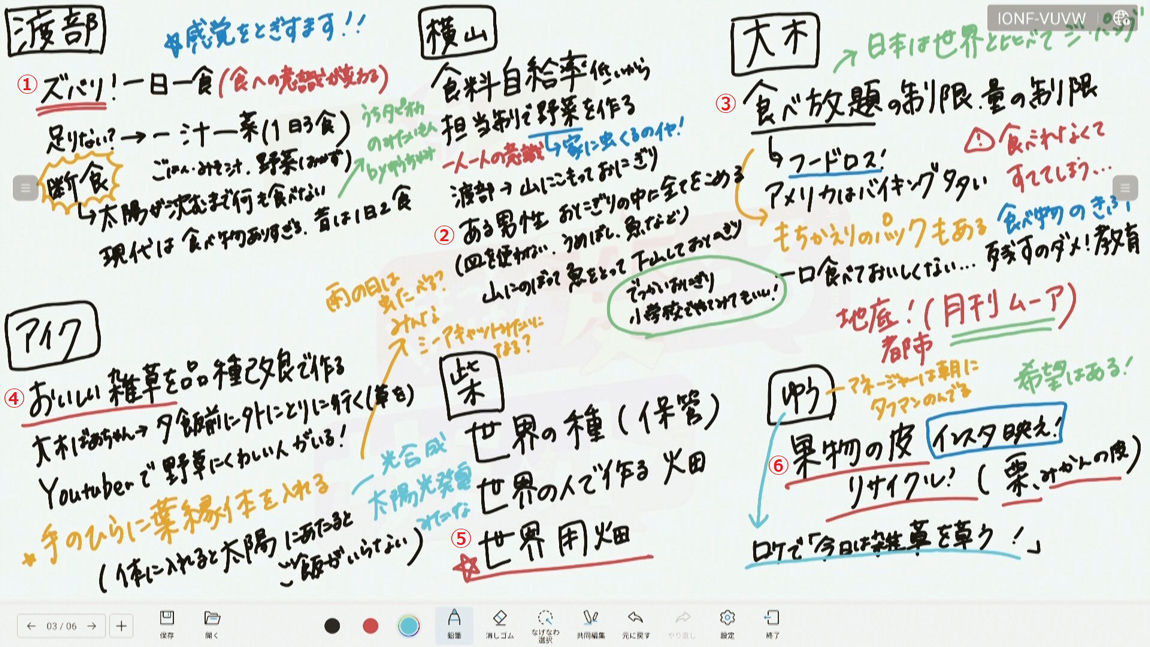 渡部
☆感覚をとぎすます!!
① ズバリ!一日一食(食への意識が変わる)
足りない?→一汁一菜(1日3食)
ごはん・みそ汁、野菜(おかず)
断食
↳太陽が沈むまで何も食べない
現代は食べ物ありすぎる、昔は1日2食
横山
食料自給率低いから
担当制で野菜を作る
一人一人の意識
↳家に虫くるのイヤ!
渡部→山にこもっておにぎり
② ある男性 おにぎりの中に全てをこめる
(皿を使わない、うめぼし、魚など)
山にのぼって魚をとって下山しておにぎり
でっかいおにぎり
小学校でやってみてもいい!
IONF-VUVW
大木
日本は世界と比べて
③ 食べ放題の制限、量の制限
↳フードロス!
食べれなくて
すててしまう…
アメリカはバイキングタダい
もちかえりのパックもある
食べ物の
一口食べておいしくない…
残すのダメ!教育
地底!(月刊ムーア)
都市
希望はある!
アイク
④ おいしい雑草を品種改良で作る
大木ばあちゃん→夕飯前に外にとりに行く(草を)
Youtuberで野草にくわしい人がいる!
☆手のひらに葉緑体を入れる
(体に入れると太陽にあたると
ご飯がいらない)
光合成
太陽光発電
みたいな
雨の日は
みんな
ミーアキャットみたいに
なる?
柴
世界の種(保管)
世界の人で作る畑
⑤ 世界用畑
ゆう
マネージャーは朝に
タフマンのんでる
⑥ 果物の皮 インスタ映え!
リサイクル!(栗、みかんの皮)
ロケで「今日は雑草を
03 / 06
保存
開く
鉛筆
消しゴム
なげなわ
選択
共同編集
元に戻す
やり直し
設定
終了